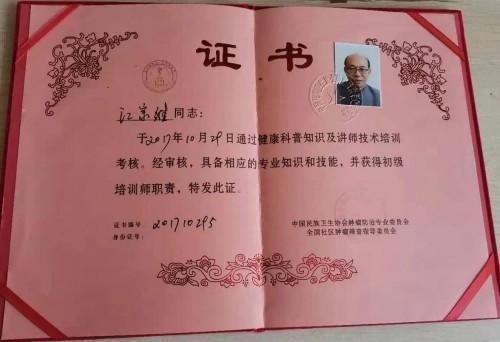 证书
江景雄 同志:
于2017年10月29日通过健康科普知识及讲师技术培训
考核。经审核,具备相应的专业知识和技能,并获得初级
培训师职责,特发此证。
证书编号 201710295
身份证号:
中国民族卫生协会肿瘤防治专业委员会
全国社区肿瘤筛查指导委员会